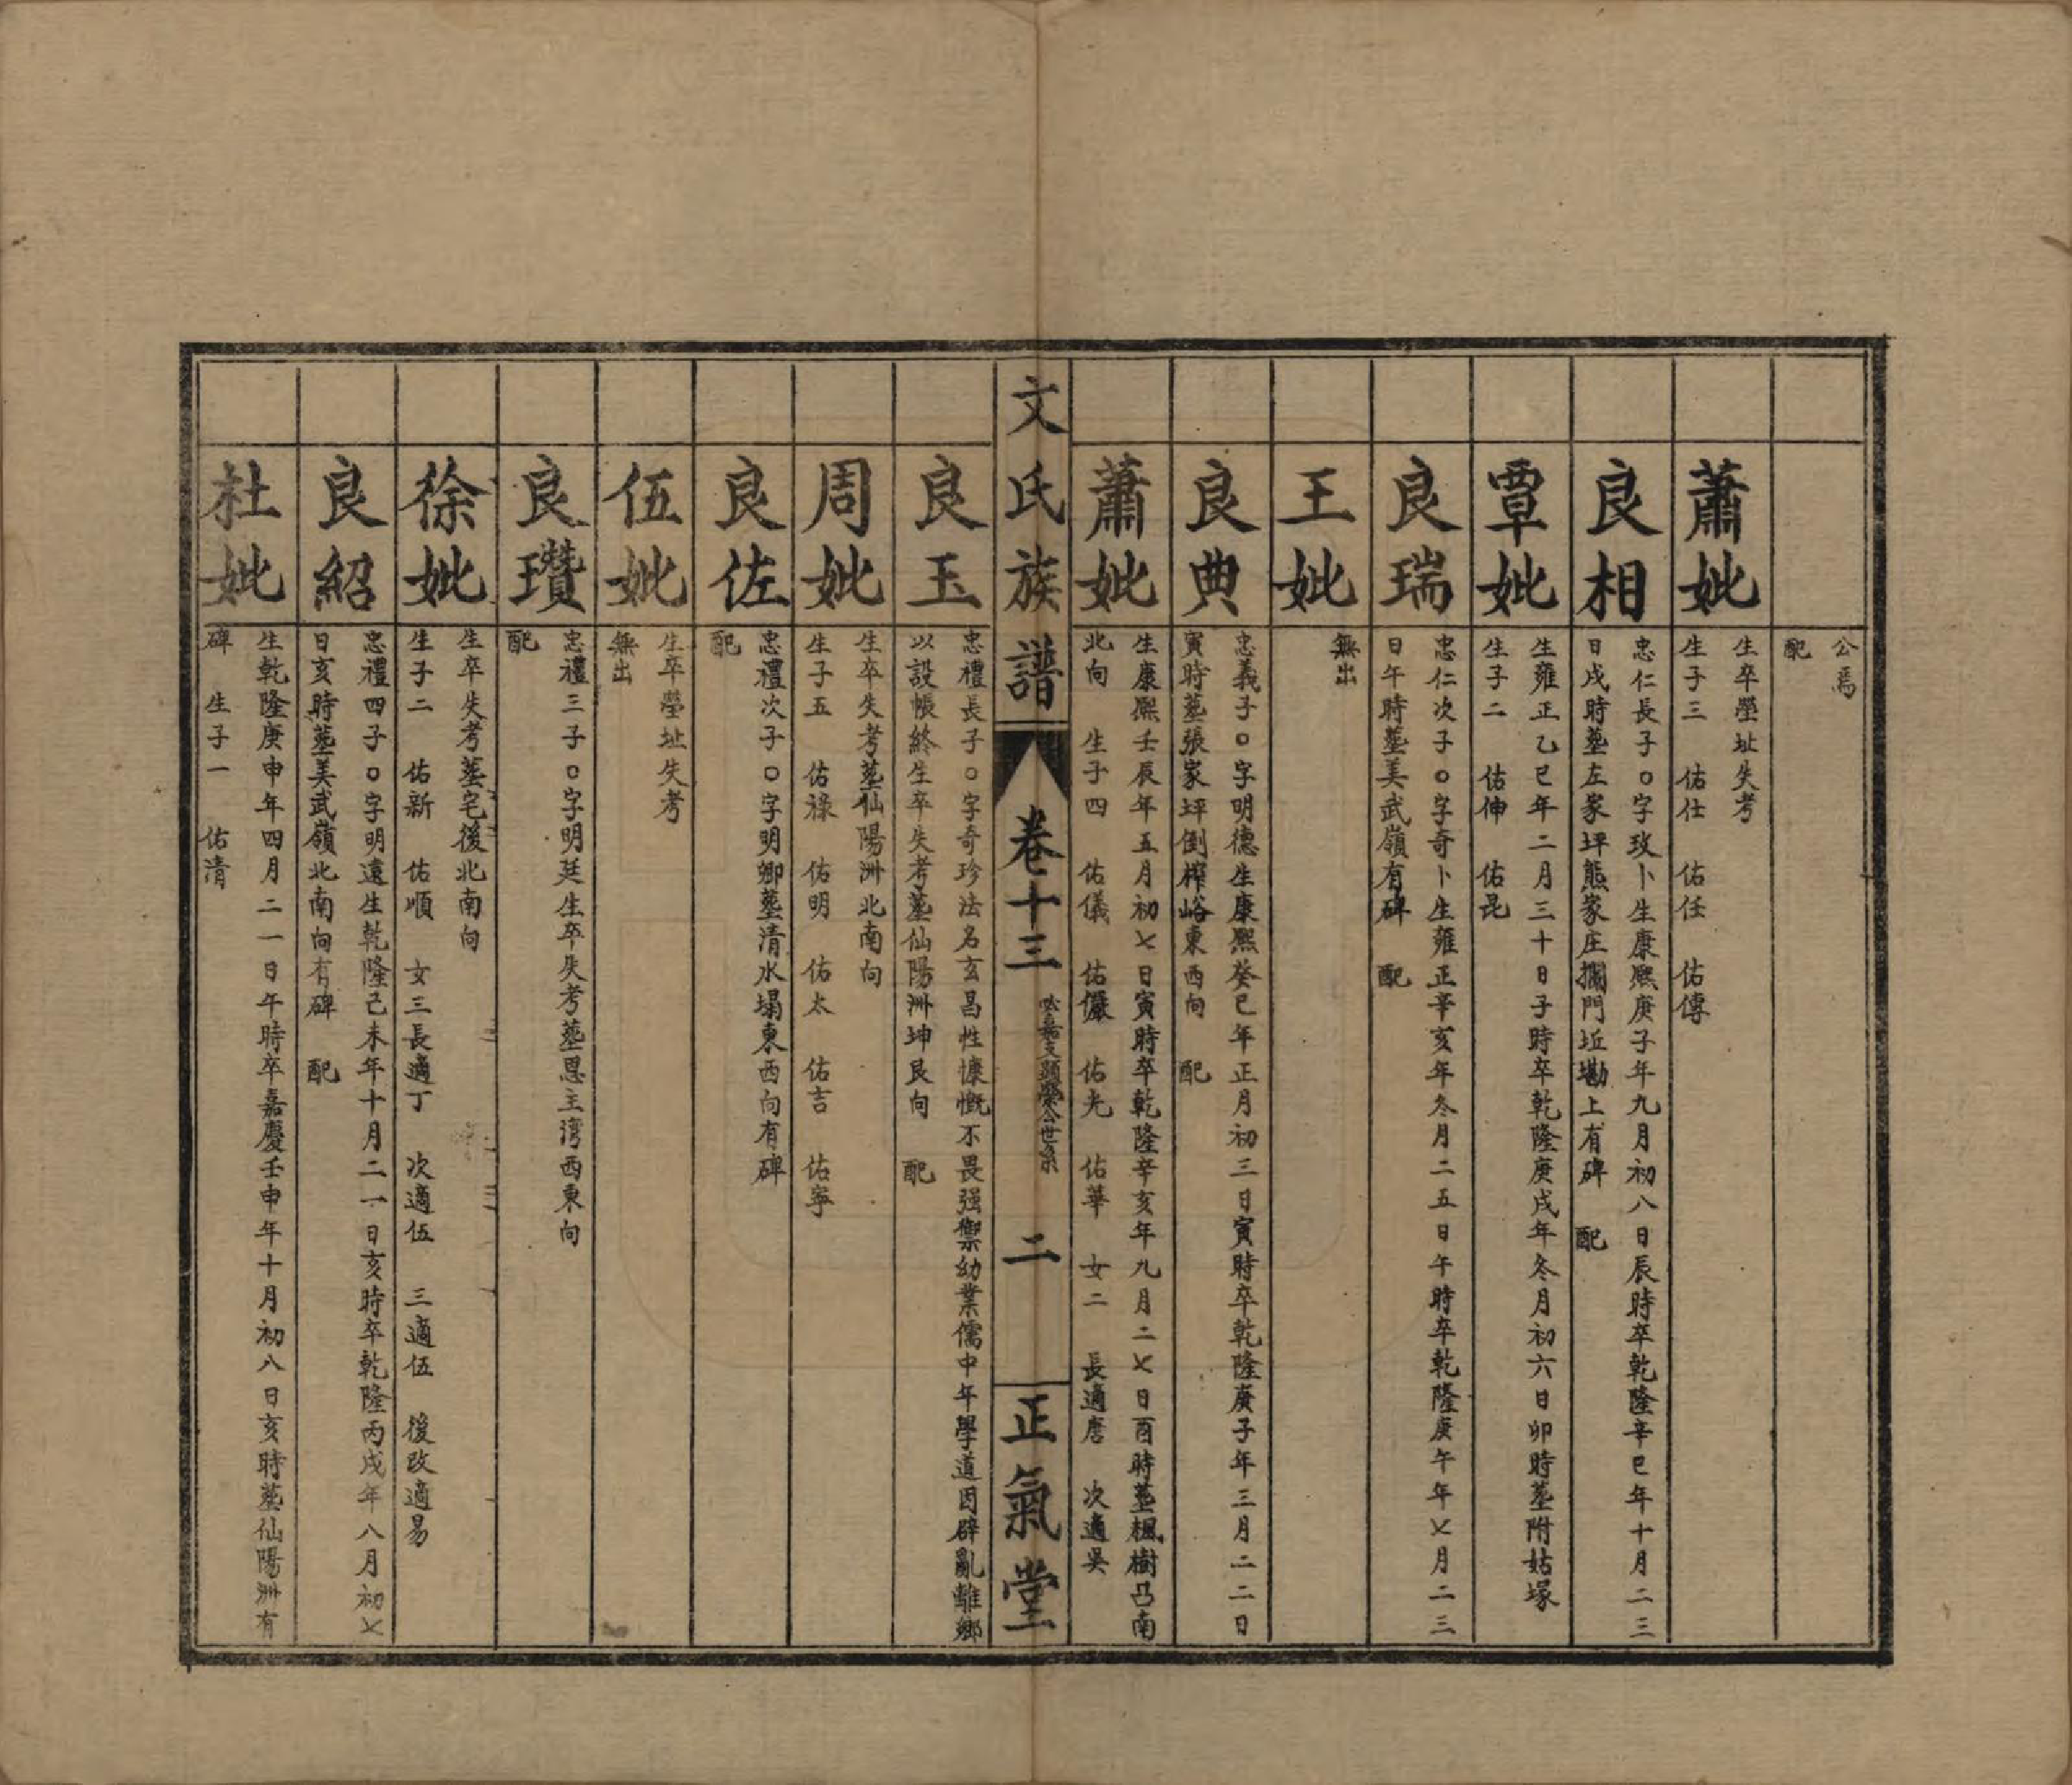 公焉
配
蕭妣
生卒塋址失考
生子三 佑仕 佑任 佑傳
良相
忠仁長子○字玫卜生康熙庚子年九月初八日辰時卒乾隆辛巳年十月二三
日戌時墓左家坪熊家庄攔門坵墈上有碑 配
覃妣
生雍正乙巳年二月三十日子時卒乾隆庚戌年冬月初六日卯時墓附姑塚
生子二 佑伸 佑昆
良瑞
忠仁次子○字奇卜生雍正辛亥年冬月二五日午時卒乾隆庚午年七月二三
日午時墓美武嶺有碑 配
王妣
無出
良典
忠義子○字明德生康熙癸巳年正月初三日寅時卒乾隆庚子年三月二二日
寅時墓張家坪倒樑峪東西向 配
蕭妣
生康熙壬辰年五月初七日寅時卒乾隆辛亥年九月二七日酉時墓楓樹凸南
北向 生子四 佑儀 佑儼 佑光 佑華 女二 長適唐 次適吳
文氏族譜 卷十三 嘉支顯榮公世系 二 正氣堂
良玉
忠禮長子○字奇珍法名玄昌性慷慨不畏强禦幼業儒中年學道因辟亂離鄉
以設帳終生卒失考墓仙陽洲坤艮向 配
周妣
生卒失考墓仙陽洲北南向
生子五 佑祿 佑明 佑太 佑吉 佑寧
良佐
忠禮次子○字明卿墓清水塌東西向有碑
配
伍妣
生卒塋址失考
無出
良瓚
忠禮三子○字明廷生卒失考墓恩主灣西東向
配
徐妣
生卒失考墓宅後北南向
生子二 佑新 佑順 女三長適丁 次適伍 三適伍 後改適易
良紹
忠禮四子○字明遠生乾隆己未年十月二一日亥時卒乾隆丙戌年八月初七
日亥時墓美武嶺北南向有碑 配
杜妣
生乾隆庚申年四月二一日午時卒嘉慶壬申年十月初八日亥時墓仙陽洲有
碑 生子一 佑清